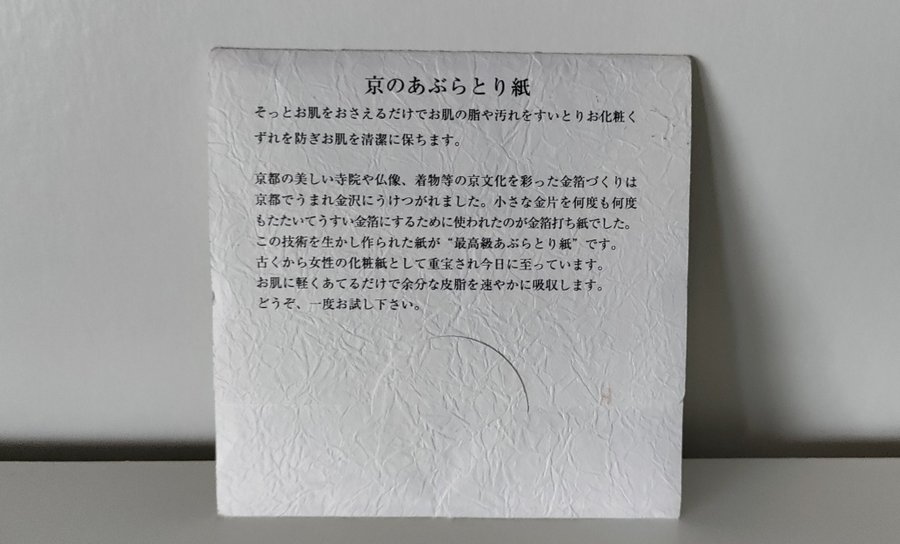 京のあぶらとり紙
そっとお肌をおさえるだけでお肌の脂や汚れをすいとりお化粧く
ずれを防ぎお肌を清潔に保ちます。
京都の美しい寺院や仏像、着物等の京文化を彩った金箔づくりは
京都でうまれ金沢にうけつがれました。小さな金片を何度も何度
もたたいてうすい金箔にするために使われたのが金箔打ち紙でした。
この技術を生かし作られた紙が“最高級あぶらとり紙”です。
古くから女性の化粧紙として重宝され今日に至っています。
お肌に軽くあてるだけで余分な皮脂を速やかに吸収します。
どうぞ、一度お試し下さい。